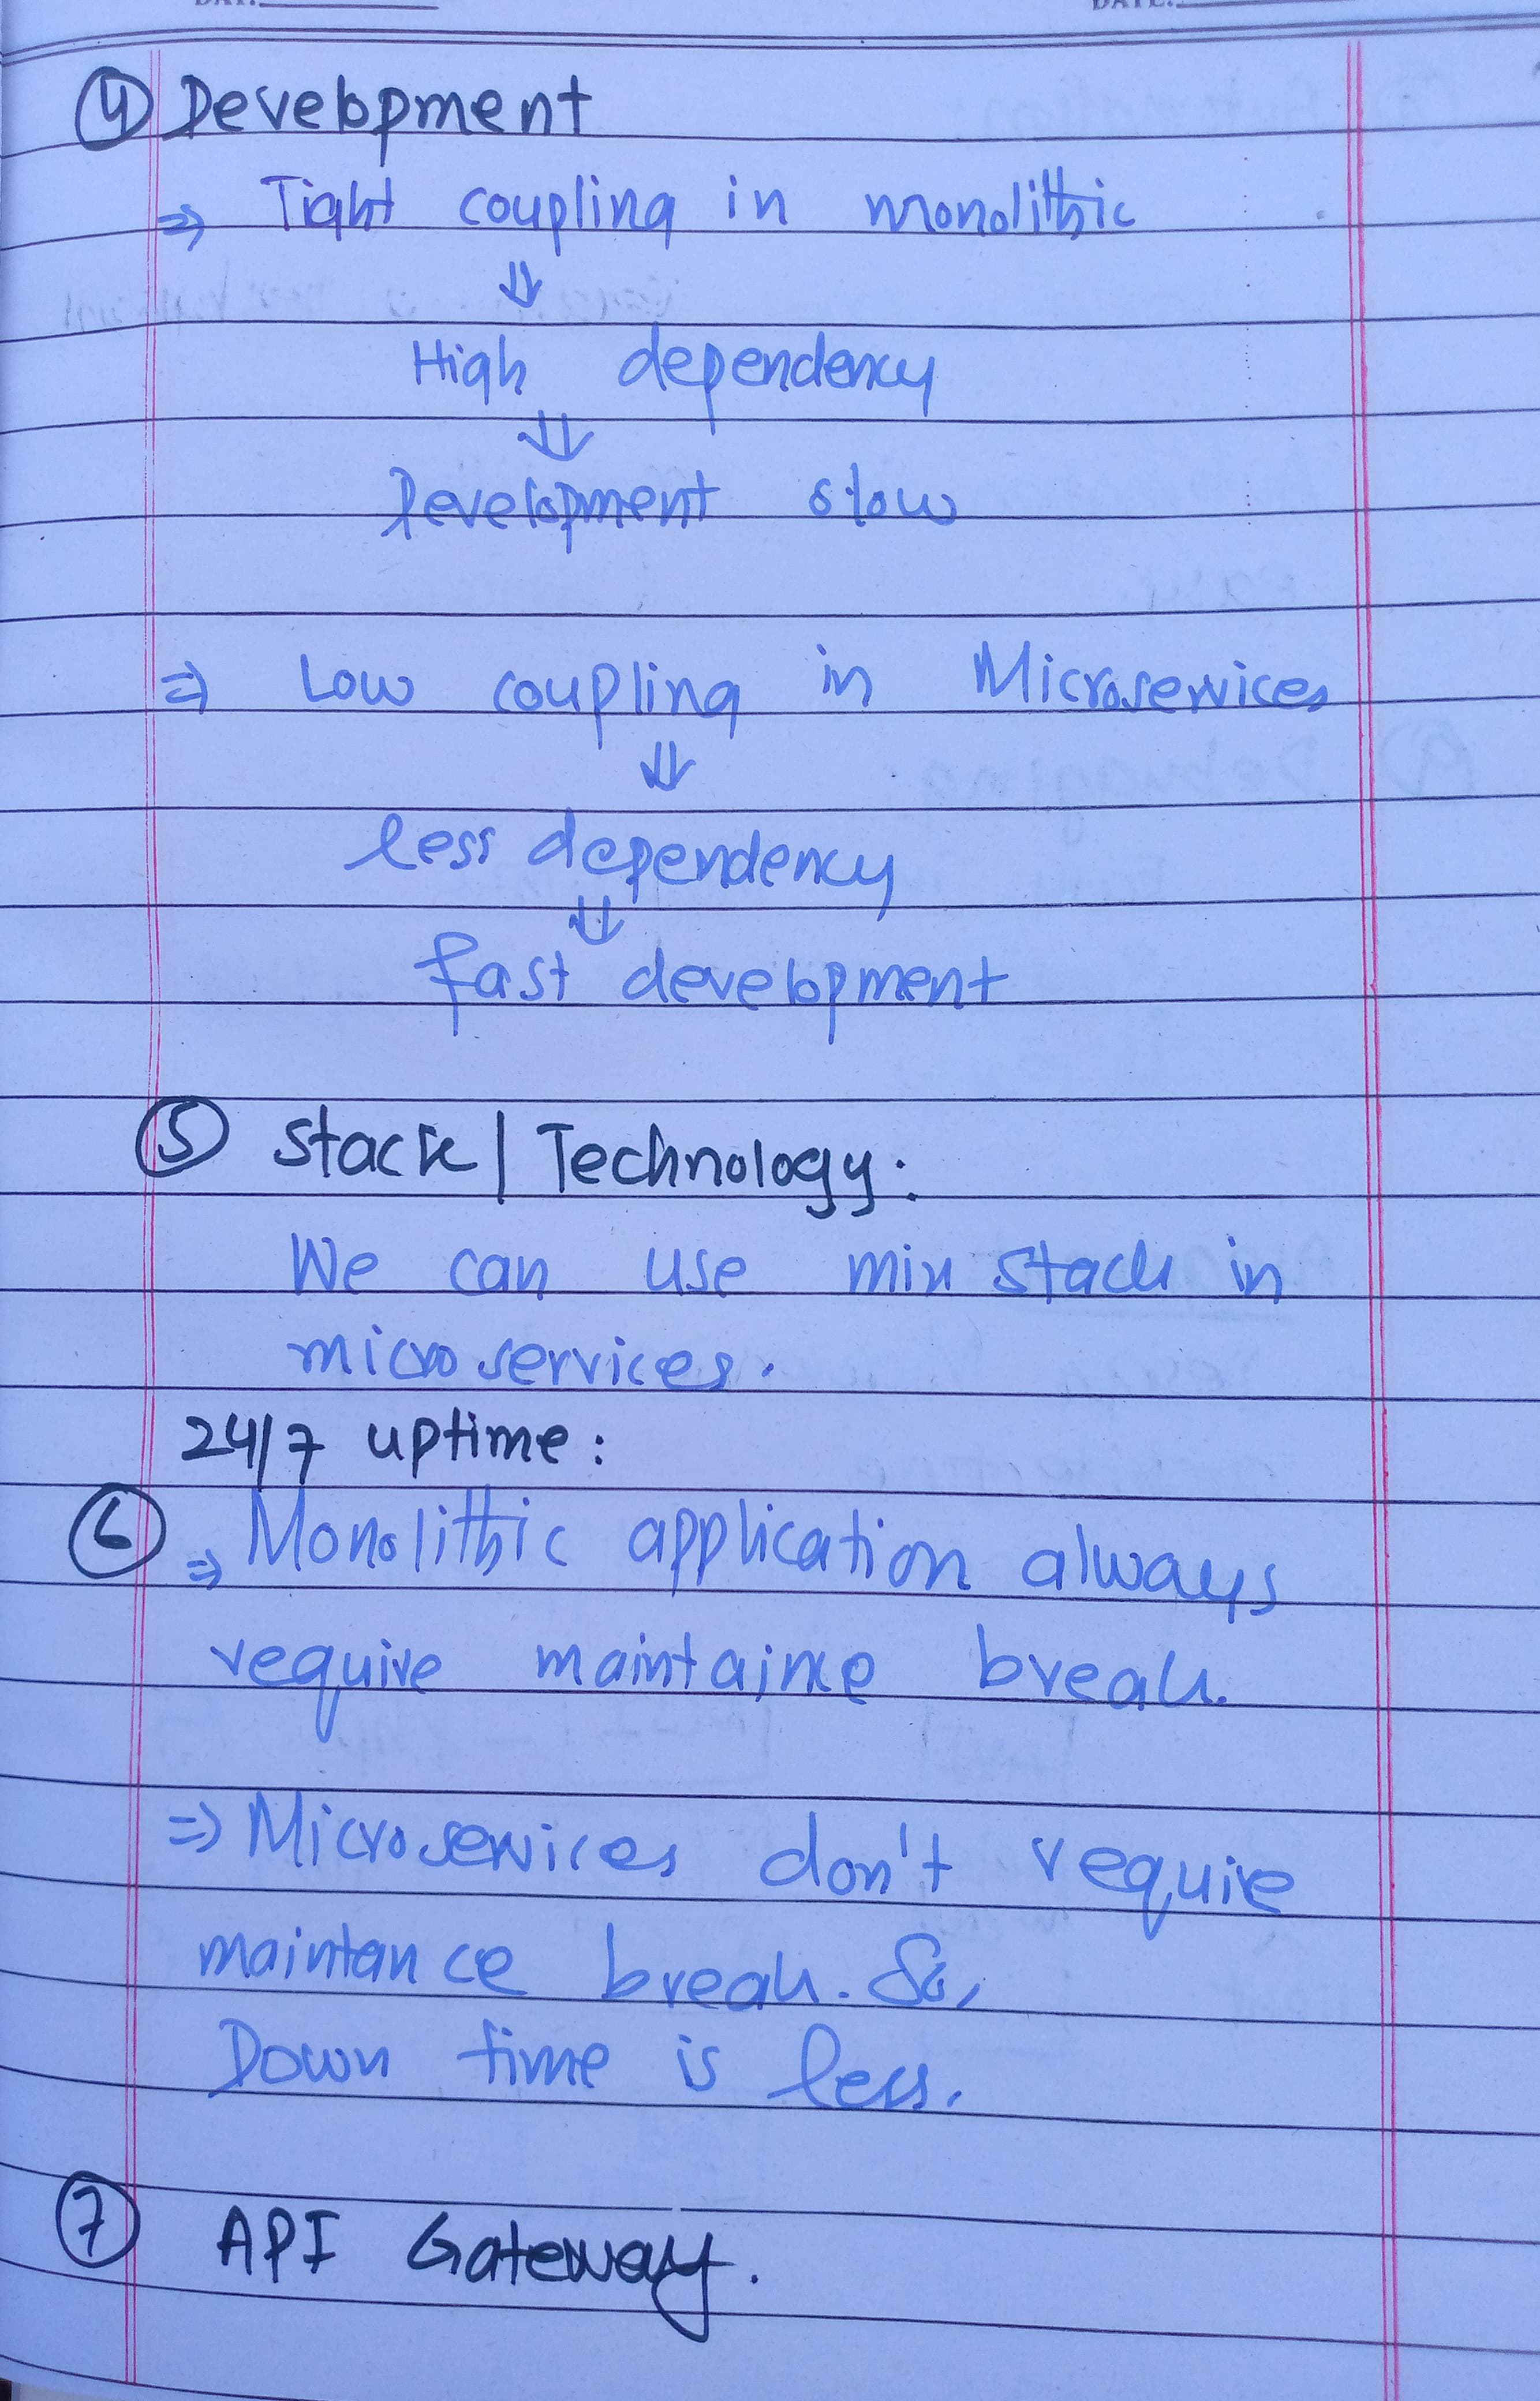 DAY:
DATE:
④ Development
⇒ Tight coupling in monolithic
⇓
High dependency
⇓
Development slow
⇒ Low coupling in Microservices
⇓
less dependency
⇓
fast development
⑤ Stack | Technology:
We can use mix stack in
microservices.
24/7 uptime:
⑥ ⇒ Monolithic application always
require maintaince break.
⇒ Microservices don't require
maintance break. So,
Down time is less.
⑦ API Gateway.